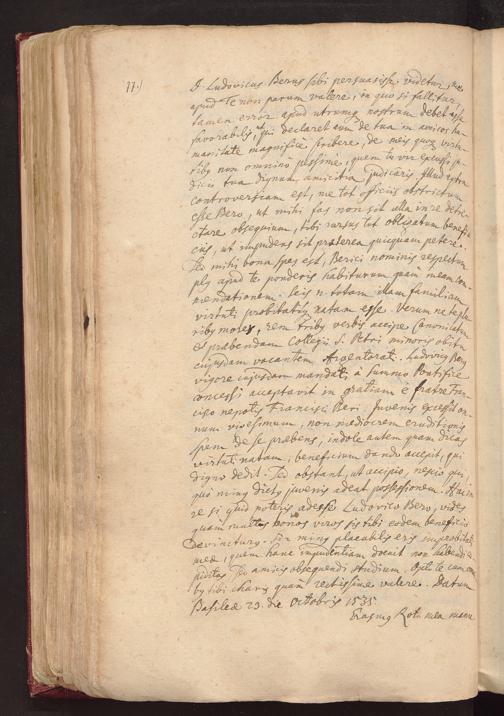 77.
D. Ludovicus Berus sibi persuasisse videtur, me
apud te non parum valere, in quo si fallitur,
tamen error apud utrumq nostrum debet esse
favorabilis, qui declaret eum de tua in amicos hu-
manitate magnifice scribere, de meis quoq virtu-
tibq non omnino pessime, quem tu vir
tua dignum amicitia judicaris. Illud extra
controversiam est, me tot officiis obstrictum
esse Bero, ut mihi fas non sit ulla in re detre-
ctare obsequium, tibi rursus tot obligatum benefi-
ciis, ut impudens sit praeterea quicquam petere.
Sed mihi bona spes est, Berici nominis respectum
plq apud te ponderis habiturum quam meam com-
mendationem. Scis n. totam illam familiam
virtuti probitatiq natam esse. Verum ne te plu-
ribq morer, rem tribq verbis accipe. Canonicatum
et praebendam Collegii S. Petri minoris obitu
cujusdam vacantem Argentorati. Ludovicq Berq
vigore cujusdam mandati à summo Pontifice
concessi acceptavit in gratiam è fratre Fran-
cisco nepotis Francisci Beri. Juvenis excessit
non mediocrem eruditionis
spem de se praebens, indole autem quam dicas
virtuti natam, beneficium dando accepit, qui
digno dedit. Sed obstant, ut accipio, nescio qui,
quo minq dictq juvenis adeat possessionem. Hac in
re si quid poteris adesse Ludovico Bero, vides
quam multos bonos viros sis tibi eodem beneficio
devincturq. Sin minq placabilis eris improbitati
meae, quem hanc impudentiam docuit non
sed amicis obsequendi studium. Opto te cum omni-
bq tibi charis quam rectissime valere. Datum
Basileae 23. die Octobris 1535.
Erasmq Rot. mea manu